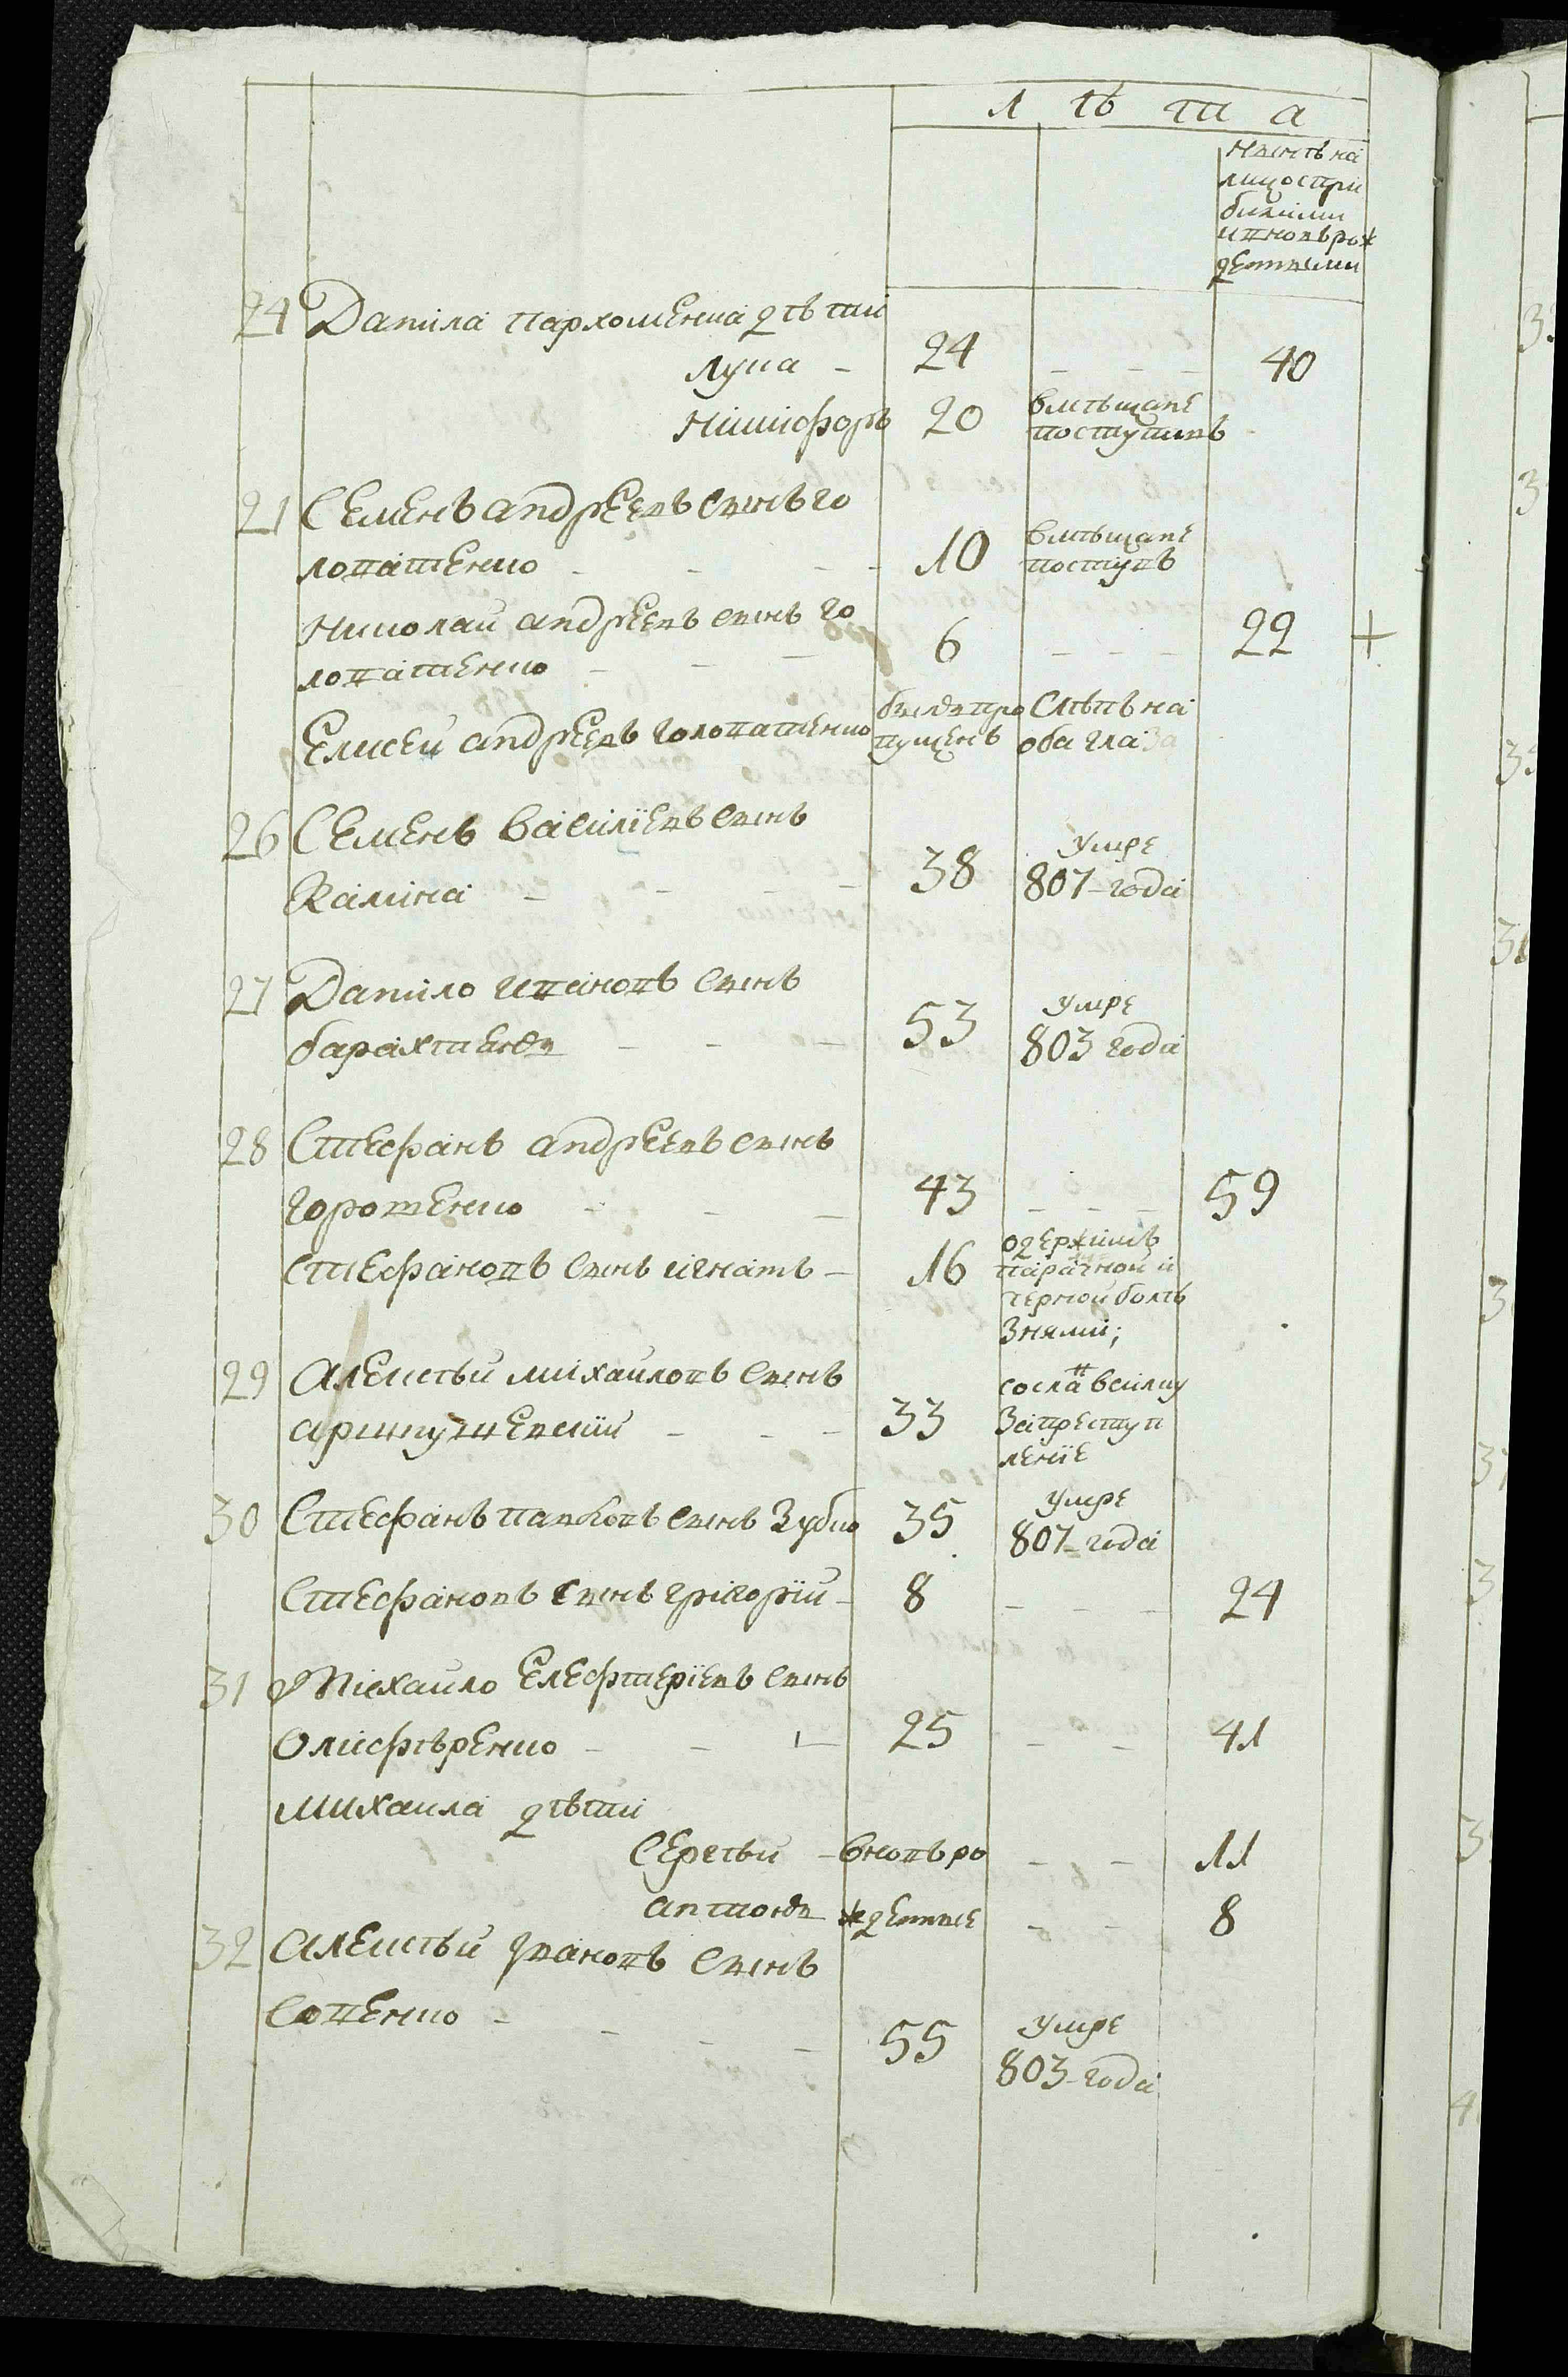 Лѣта
Нынѣ на
лицо с при
былими
и вновь рож
денными
24 Данила Пархоменка дѣти
Лука - 24 - - - 40
Никифоръ 20 в мѣщане
поступилъ
21 Семенъ Андреевъ сынъ Го
лопатенко - - - 10 в мѣщане
поступъ
Николай Андреевъ сынъ Го
лопатенко - - - 6 - - - 22 +
Елисей Андреевъ Голопатенко былъ про Слѣпъ на
пущенъ оба глаза
26 Семенъ Василіевъ сынъ
Калина - - - - 38 умре
807-года
27 Данило Ивановъ сынъ
- - - 53 умре
803 года
28 Стефанъ Андреевъ сынъ
- - - 43 - - - 59
Стефановъ сынъ Игнатъ - 16 одержимъ
и
черной болѣ
знями;
29 Алексѣй Михайловъ сынъ
- - - 33 сосла в силку
за преступ
леніе
30 Стефанъ Павловъ сынъ Зубко 35 умре
807-года
Стефановъ сынъ Григорій - 8 - - - 24
31 Михайло Елефтеріевъ сынъ
Олифѣренко - - - 25 - - 41
Михаила дѣти
Сергѣй - вновь ро - - 11
Антонъ жденные - - 8
32 Алексѣй Ивановъ сынъ
Сопенко - - - - 55 умре
803-года